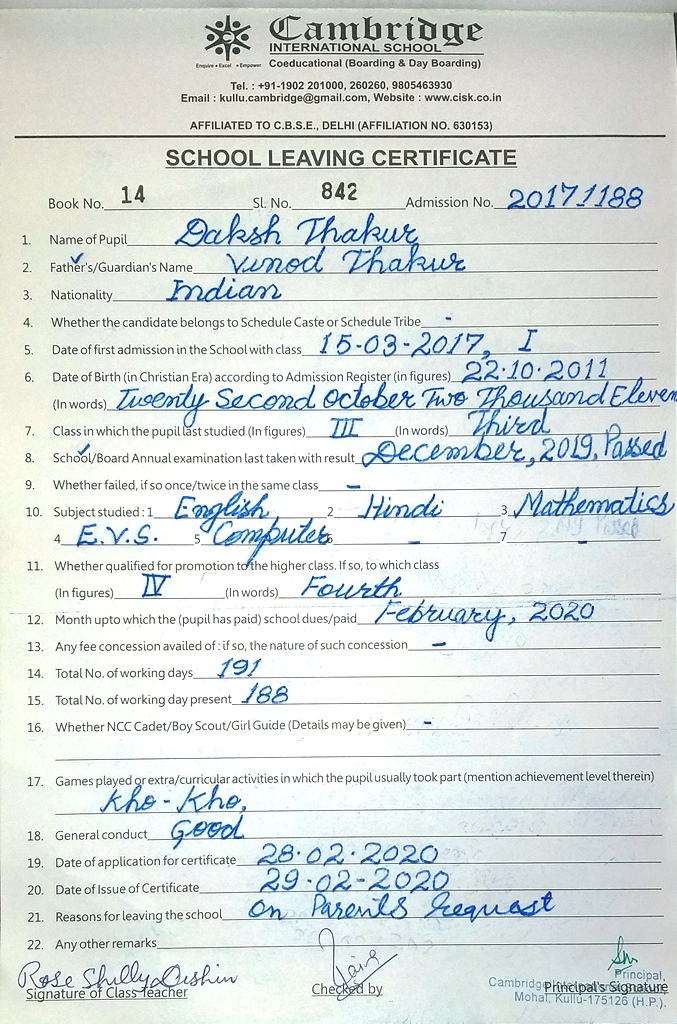 Cambridge
INTERNATIONAL SCHOOL
Enquire • Excel • Empower
Coeducational (Boarding & Day Boarding)
Tel. : +91-1902 201000, 260260, 9805463930
Email : kullu.cambridge@gmail.com, Website : www.cisk.co.in
AFFILIATED TO C.B.S.E., DELHI (AFFILIATION NO. 630153)
SCHOOL LEAVING CERTIFICATE
Book No. 14 Sl. No. 842 Admission No. 20171188
1. Name of Pupil Daksh Thakur
2. Father's/Guardian's Name Vinod Thakur
3. Nationality Indian
4. Whether the candidate belongs to Schedule Caste or Schedule Tribe -
5. Date of first admission in the School with class 15-03-2017, I
6. Date of Birth (in Christian Era) according to Admission Register (in figures) 22.10.2011
(In words) Twenty Second October Two Thousand Eleven
7. Class in which the pupil last studied (In figures) III (In words) Third
8. School/Board Annual examination last taken with result December, 2019, Passed
9. Whether failed, if so once/twice in the same class -
10. Subject studied : 1 English 2 Hindi 3 Mathematics
4 E.V.S. 5 Computer 6 - 7 -
11. Whether qualified for promotion to the higher class. If so, to which class
(In figures) IV (In words) Fourth
12. Month upto which the (pupil has paid) school dues/paid February, 2020
13. Any fee concession availed of : if so, the nature of such concession -
14. Total No. of working days 191
15. Total No. of working day present 188
16. Whether NCC Cadet/Boy Scout/Girl Guide (Details may be given) -
17. Games played or extra/curricular activities in which the pupil usually took part (mention achievement level therein)
Kho-Kho,
18. General conduct Good
19. Date of application for certificate 28.02.2020
20. Date of Issue of Certificate 29.02-2020
21. Reasons for leaving the school On Parents Request
22. Any other remarks
Rose Shilly
Signature of Class Teacher Checked by Principal's Signature
Principal,
Cambridge International
Mohal, Kullu-175126 (H.P.)